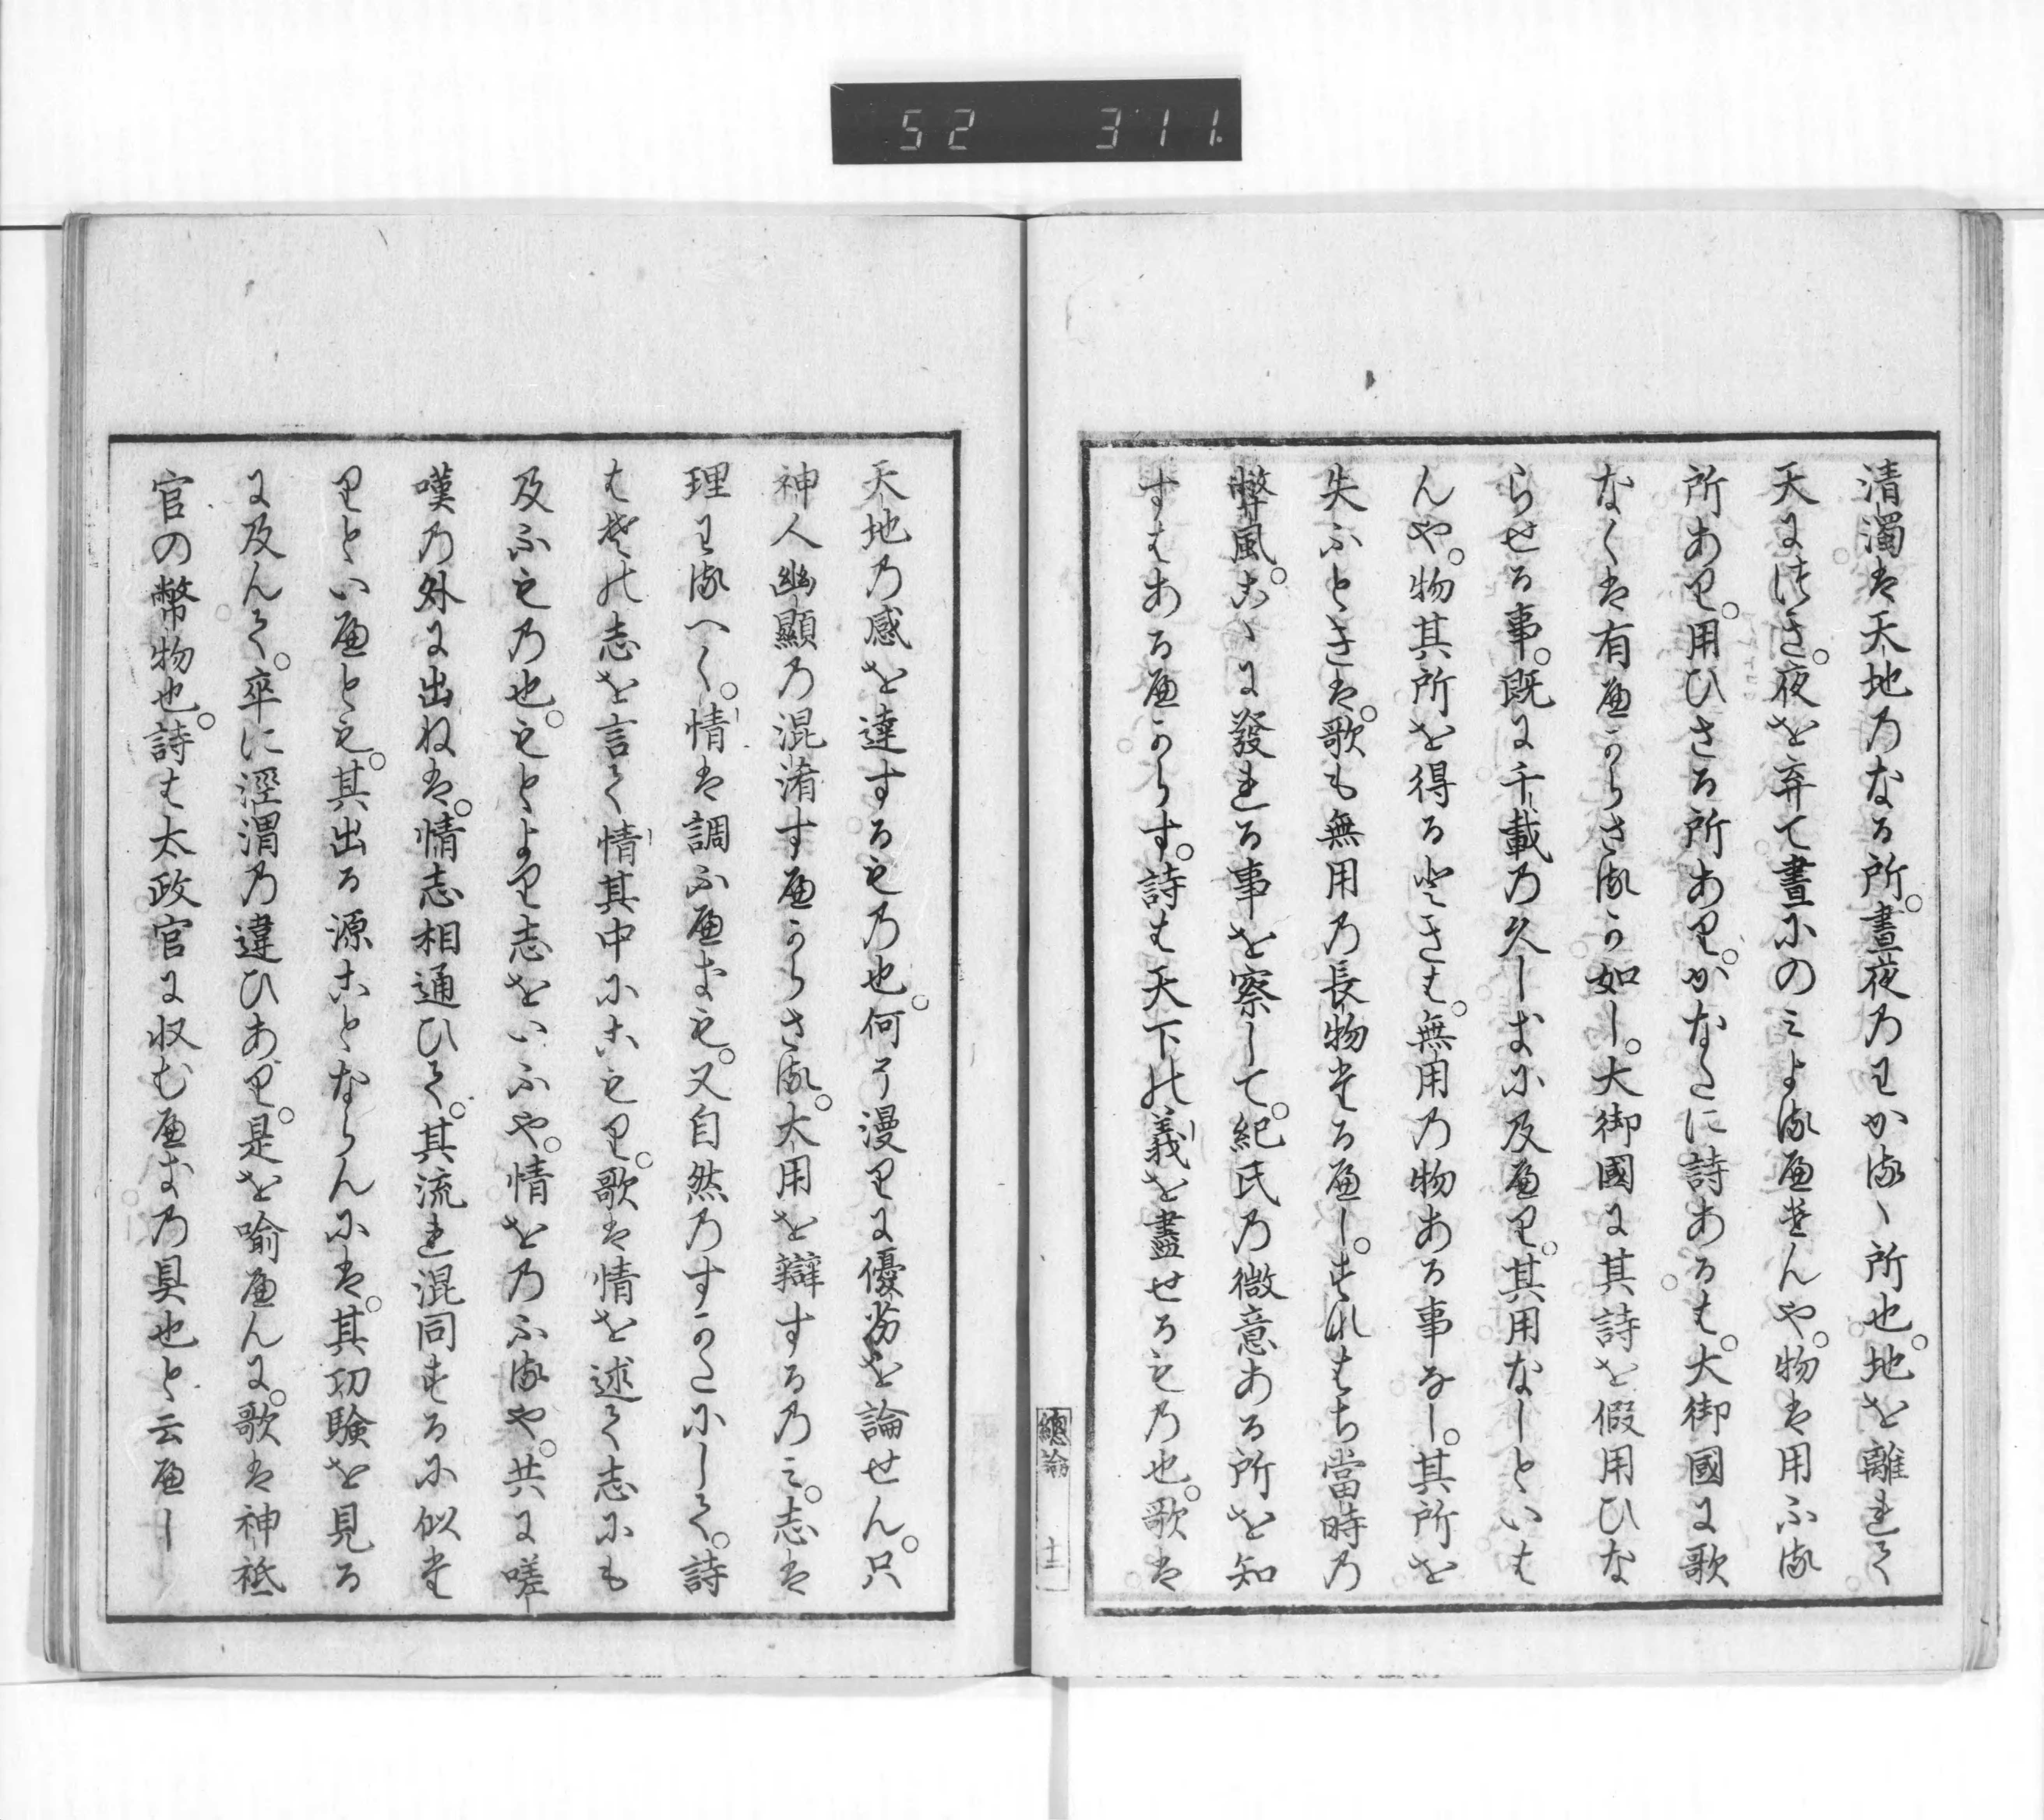 52 311.
清濁は天地のなる所。晝夜のわかるゝ所也。地を離れて
天につき。夜を弃て晝にのみよるへけんや。物は用ふる
所あり。用ひさる所あり。かなたに詩あるは。大御國に歌
なくは有へからさるか如し。大御國に其詩を假用ひな
らせる事。既に千載の久しきに及へり。其用なしといは
んや。物其所を得るときは。無用の物ある事なし。其所を
失ふときは。歌も無用の長物たるへし。すなはち當時の
弊風。こゝに發れる事を察して。紀氏の微意ある所を知
すはあるへからす。詩は天下の義を盡せるもの也。歌は
總論 十二
天地の感を達するもの也。何そ漫りに優劣を論せん。只
神人幽顯の混淆すへからさる。大用を辯するのみ。志は
理わるへく。情は調ふへきも。又自然のすかたにして。詩
はその志を言て情其中にこもり。歌は情を述て志にも
及ふもの也。もとより志をいふや。情をのふるや。共に嗟
嘆の外に出ねは。情志相通ひて。其流れ混同するに似た
りといへとも。其出る源ことならんには。其功驗を見る
に及んて。卒に涇渭の違ひあり。是を喩へんに。歌は神祇
官の幣物也。詩は太政官に収むへきの具也と云へし